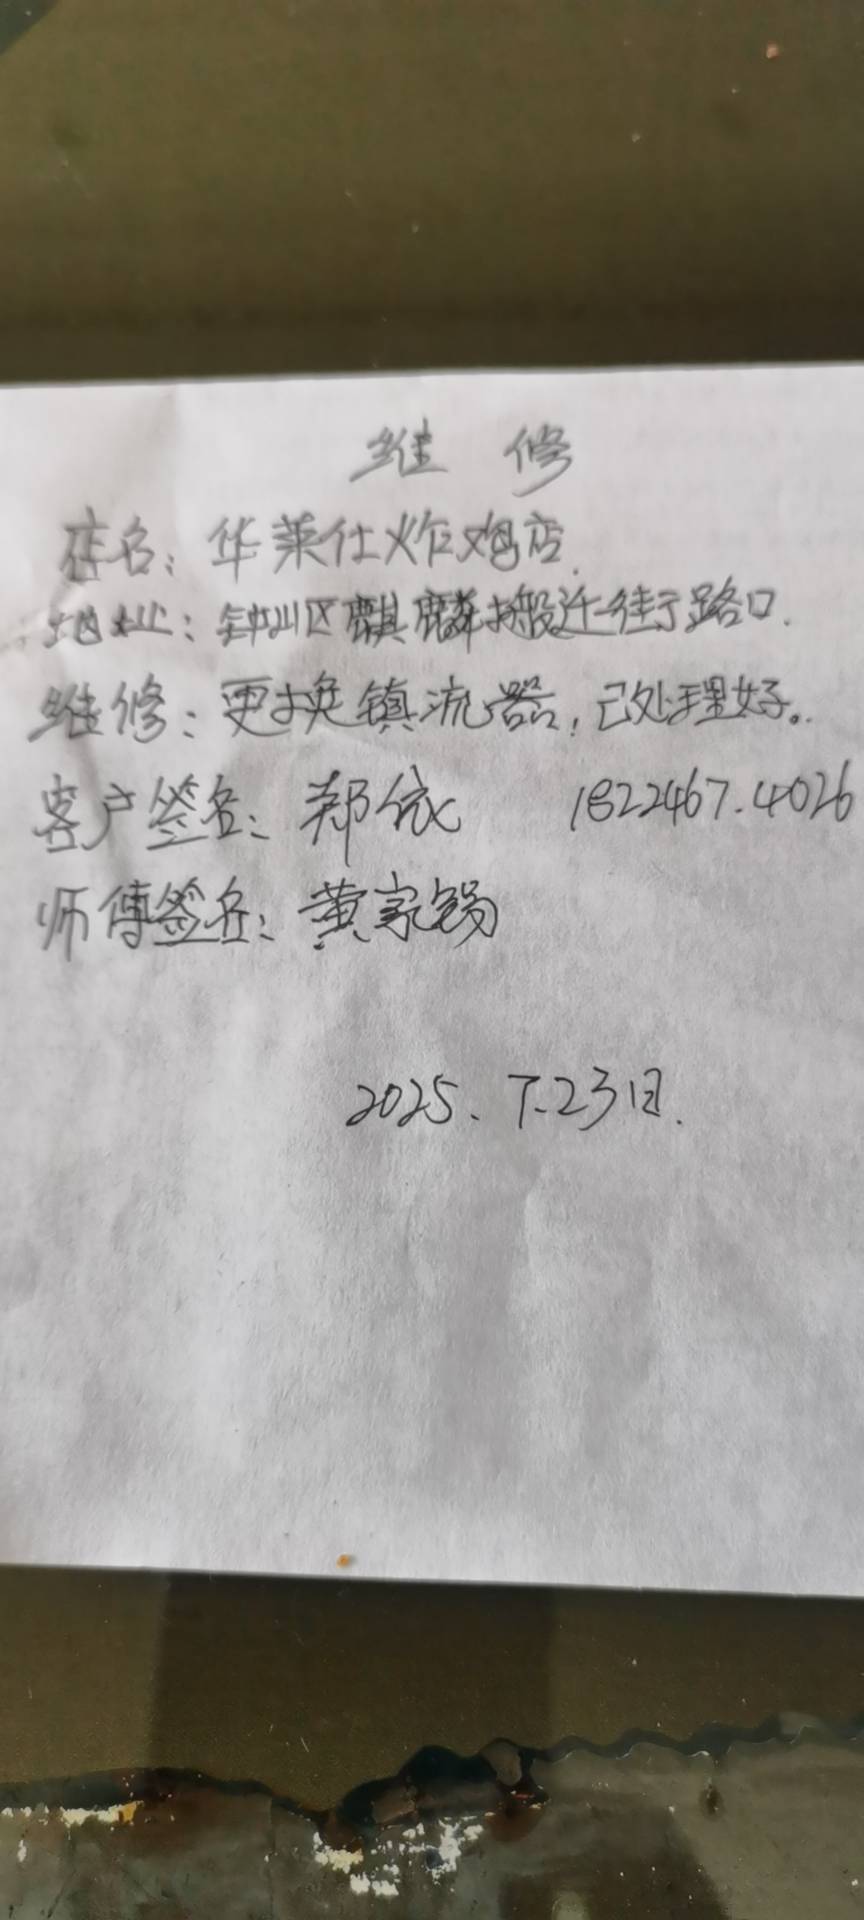 维 修
店名：华莱仕炸鸡店.
地址：钟山区麒麟搬迁街了路口.
维修：更换镇流器，已处理好。
客户签名：郑依 1822467.4026
师傅签名：黄家锡
2025. 7.23日.